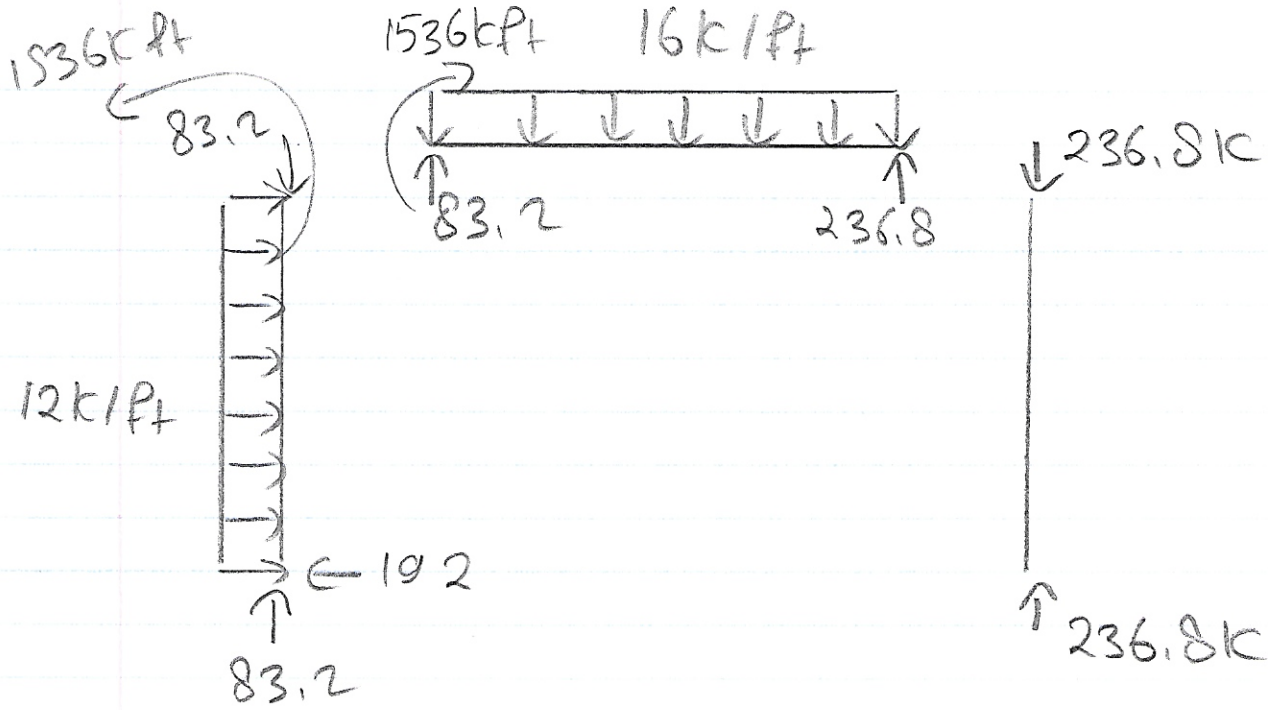 1536k ft
1536kft 16k/ft
83.2
236.8k
83.2
236.8
12k/ft
192
83.2
236.8k